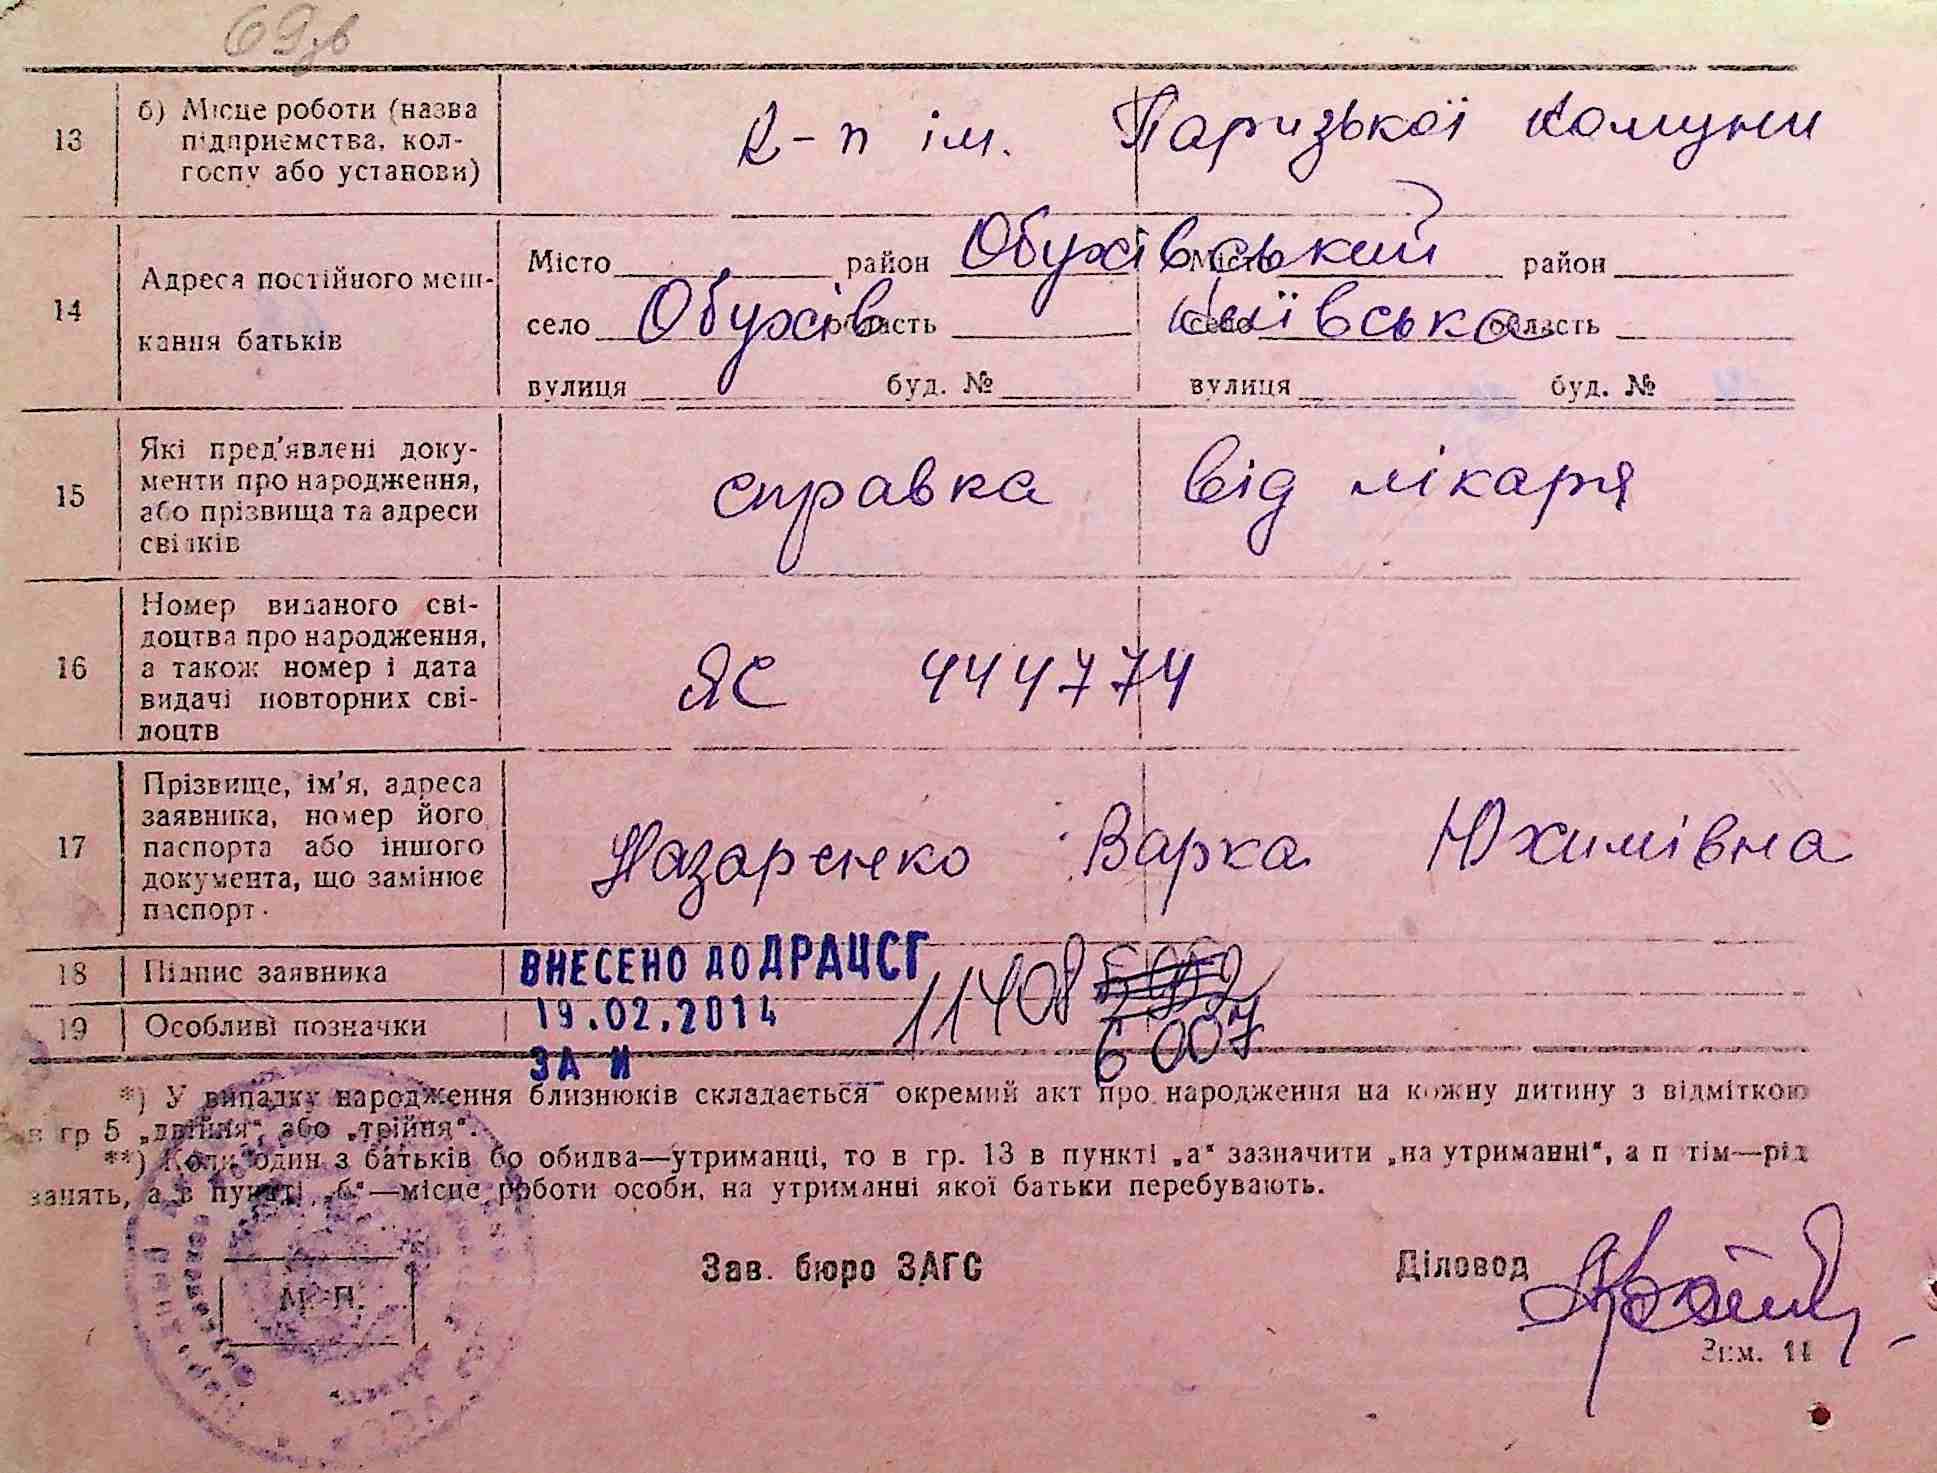 69зв
13
б) Місце роботи (назва
підприємства, кол-
госпу або установи)
к-п ім. Паризької Комуни
14
Адреса постійного меш-
кання батьків
Місто район Обухівський Місто район
село Обухів область Київська село область
вулиця буд. № вулиця буд. №
15
Які пред'явлені доку-
менти про народження,
або прізвища та адреси
свідків
справка від лікаря
16
Номер виданого сві-
доцтва про народження,
а також номер і дата
видачі повторних сві-
доцтв
ЯС 444774
17
Прізвище, ім'я, адреса
заявника, номер його
паспорта або іншого
документа, що замінює
паспорт.
Назаренко Варка Юхимівна
18
Підпис заявника
ВНЕСЕНО ДО ДРАЦСГ
11408
19
Особливі позначки
19.02.2014
6007
ЗА И
*) У випадку народження близнюків складається окремий акт про народження на кожну дитину з відміткою
в гр 5 „двійня“ або „трійня“.
**) Коли один з батьків бо обидва—утриманці, то в гр. 13 в пункті „а“ зазначити „на утриманні“, а п тім—рід
занять, а в пункті „б“—місце роботи особи, на утриманні якої батьки перебувають.
Зав. бюро ЗАГС
Діловод
М. П.
Зам. 11